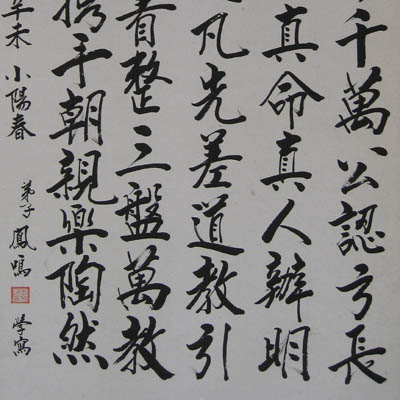 千萬公認方長
真命真人辦明
凡先差道教引
育整三盤萬教
携手朝親樂陶然
辛未小陽春
弟子鳳鳴學寫